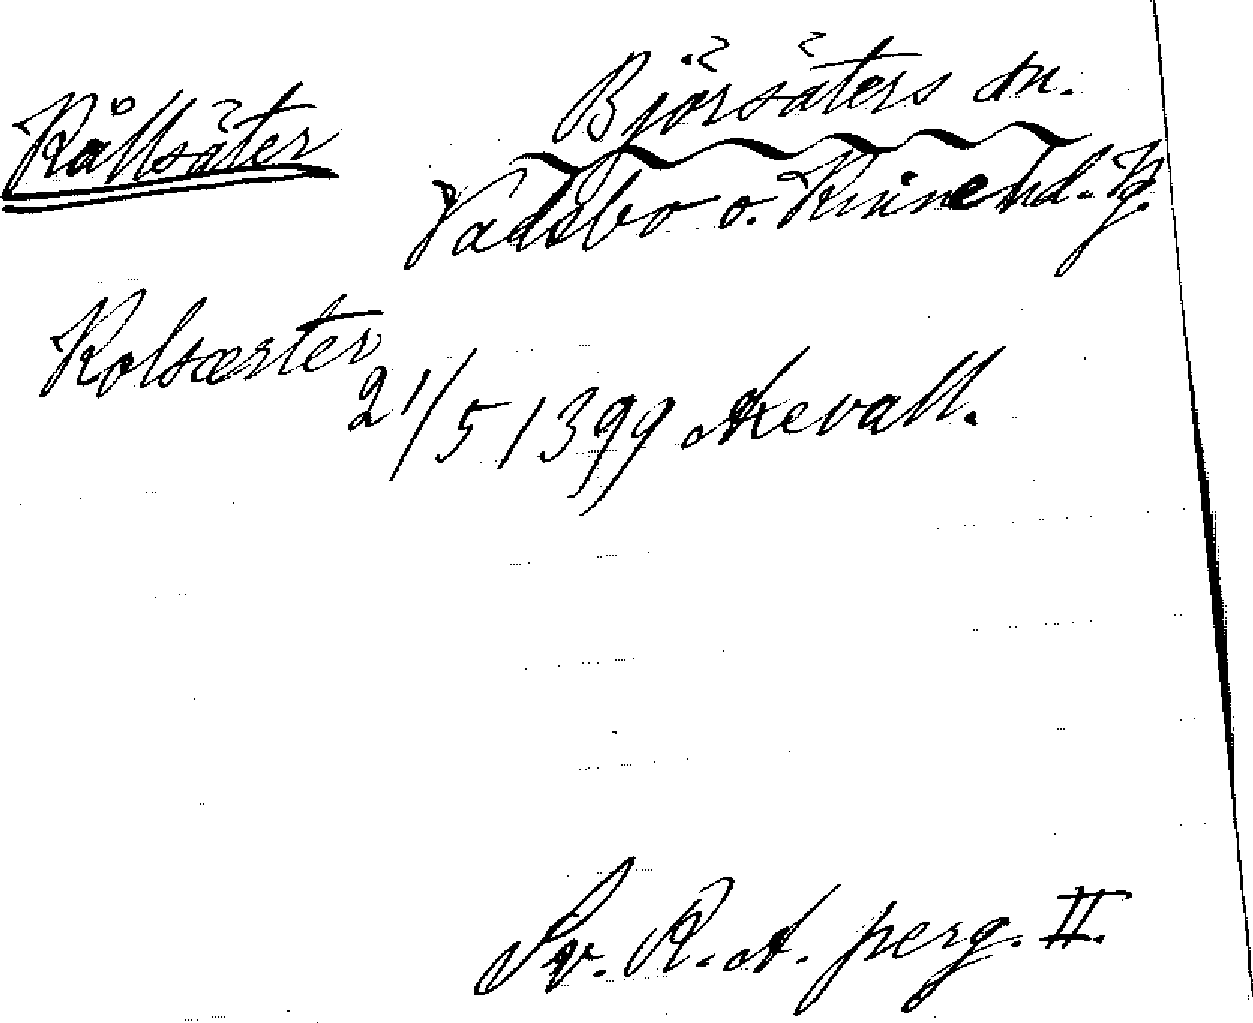 Kållsäter
Björsäters sn.
Vadsbo o. Kinne hd.
Kolsæter
21/5 1399 Axevall.
Sv. R. A. perg. II.